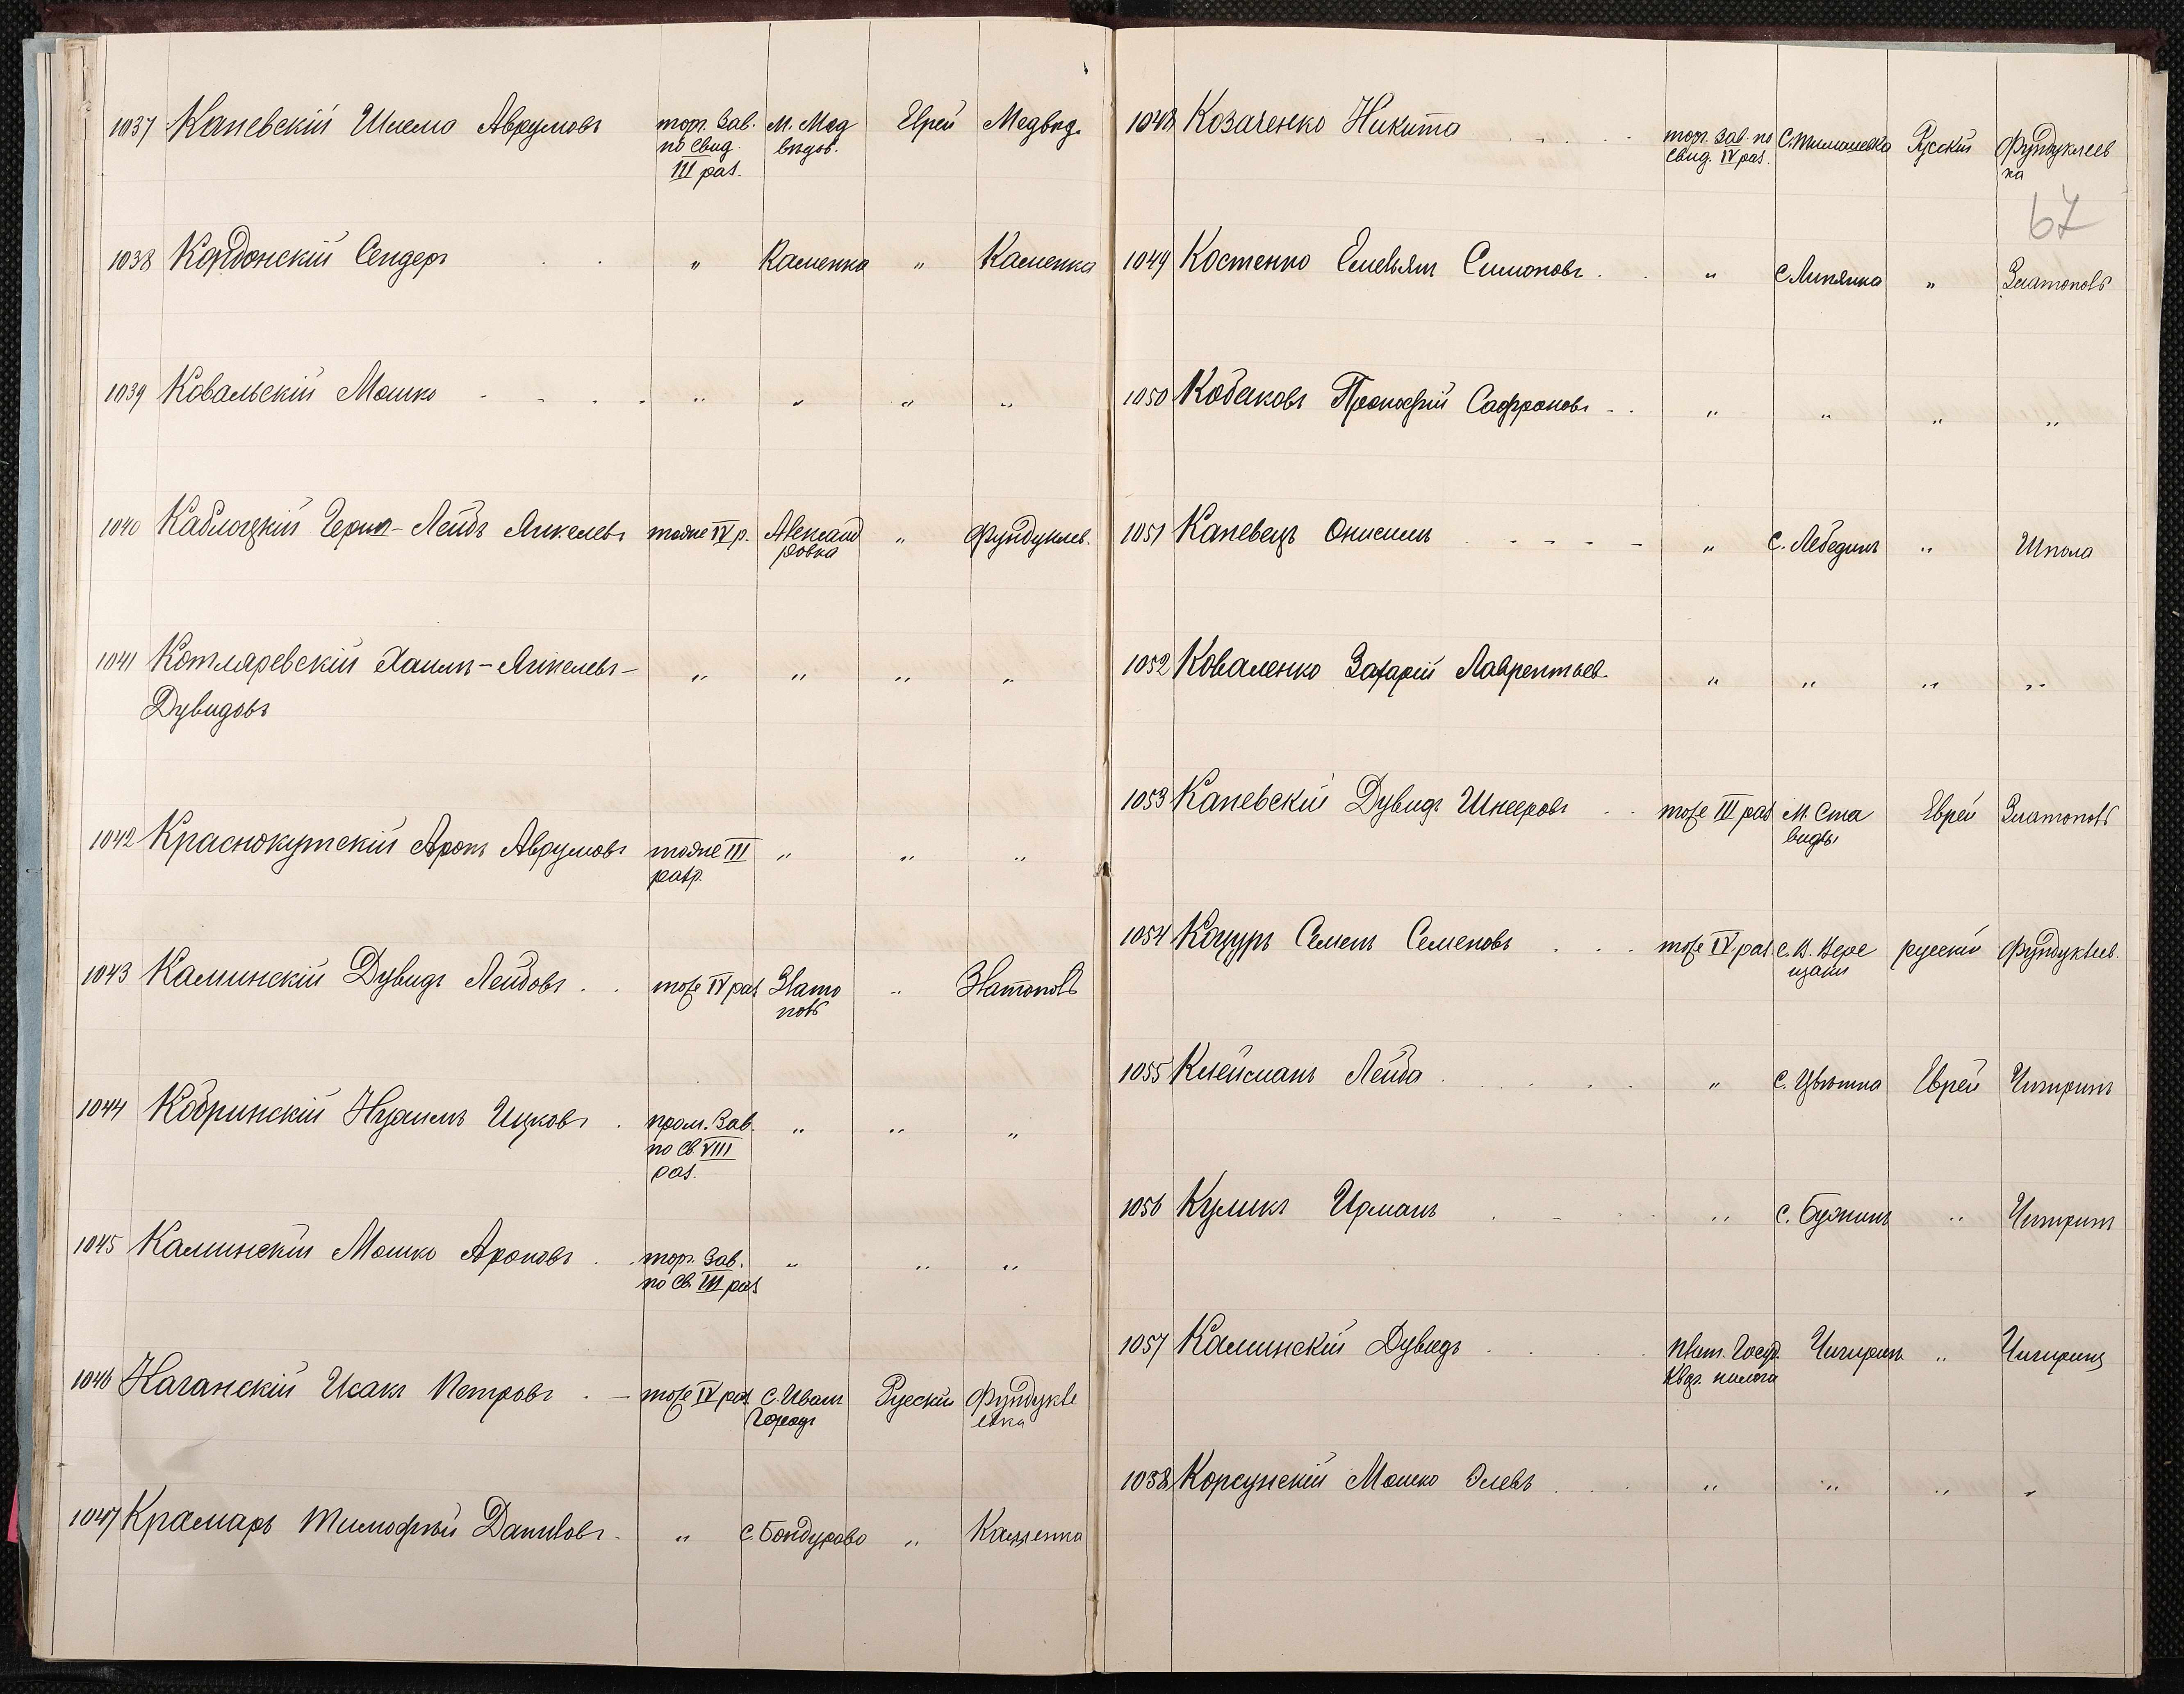 1037 Каневскій Шлемо Аврумовъ торг. Зав. М. Мед Еврей Медвед.
по свид. ведов.
III раз.
1038 Кордонскій Сендеръ . . " Каменка " Каменка
1039 Ковальскій Мошко - - . . " " " "
1040 Каблоцкій Герш-Лейбъ Янкелевъ тоже IV р. Александ " Фундуклев.
ровка
1041 Котляревскій Хаимъ-Янкелевъ- " " " "
Дувидовъ
1042 Краснокутскій Аронъ Аврумовъ тоже III " " "
разр.
1043 Каминскій Дувидъ Лейбовъ . . тоже IV раз Злато " Златополь
поль
1044 Кобринскій Нухимъ Ицковъ . пром. Зав. " " "
по св VIII
раз.
1045 Каминскій Мошко Ароновъ . . торг. Зав. " " "
по св. III раз
1046 Наганскій Исакъ Петровъ . - тоже IV раз С. Иван Русскій Фундукле
Городъ евка
1047 Крамарь Тимофей Даниловъ - " С. Бондурово " Каменка
1048 Козаченко Никита . . . торг. Зав. по С. Тимошевка Русскій Фундуклеев
свид. IV раз. ка
67
1049 Костенко Емельян Симоновъ . . " С Липянка " Златополь
1050 Кобаковъ Прокофій Сафроновъ - . " " " "
1051 Каневецъ Онисимъ - - - - " С. Лебединъ " Шпола
1052 Коваленко Захарій Лаврентьев " " " "
1053 Каневскій Дувидъ Шнееровъ . . тоже III раз М. Ста Еврей Златополь
виды
1054 Коцуръ Семенъ Семеновъ . . . тоже IV раз. С. В. Вере русскій Фундуклеев.
щаки
1055 Клейсманъ Лейба . . . . " С. Цветна Еврей Чигиринъ
1056 Куликъ Ирманъ . - . . " С. Бужинъ " Чигиринъ
1057 Каминскій Дувидъ . . . Плат. Госуд. Чигирин. " Чигиринъ
Квар. налога
1038 Корсунскій Мошко Элевъ . . . " " " "